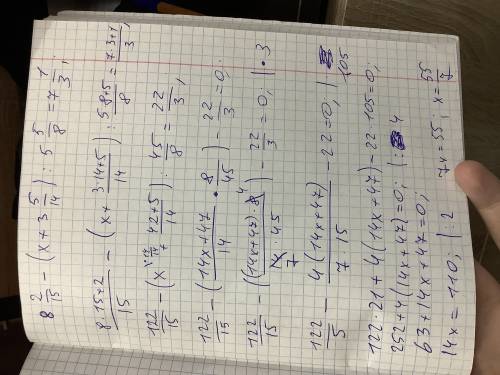 8 2/15 - (x + 3 5/14) : 5 5/8 = 7 1/3;
(8·15+2)/15 - (x + (3·14+5)/14) : (5·8+5)/8 = (7·3+1)/3;
122/15 - (x + (42+5)/14) : 45/8 = 22/3;
122/15 - ((14x+47)/14 · 8/45) - 22/3 = 0;
122/15 - ((14x+47)·8 4/14 7 · 45) - 22/3 = 0; | · 3
122/5 - 4(14x+47)/7 15 - 22 = 0; | 105
122·21 + 4(14x+47) - 22 105 = 0;
252 + 4(14x+47) = 0; | : 4
63 + 14x + 47 = 0;
14x = 110; | : 2 7x = 55; x = 55/7